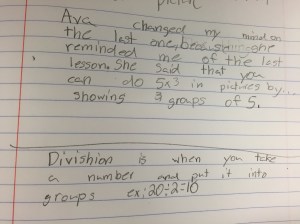 picture
Ava changed my mind on
the last one, because she
reminded me of the last
lesson. She said that you
can do 5x3 in pictures by...
showing 3 groups of 5.
Divishion is when you take
a number and put it into
groups ex: 20÷2=10